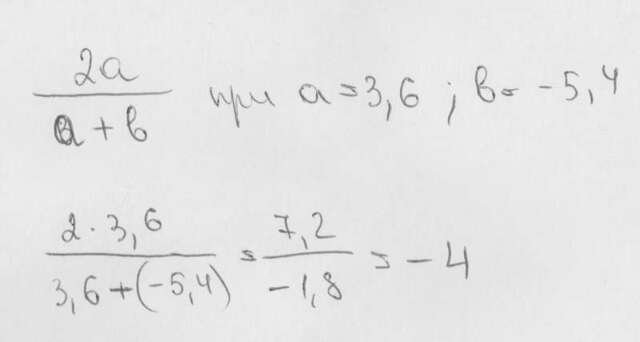 2a / a + b при a = 3,6 ; b = -5,4
2 · 3,6 / 3,6 + (-5,4) = 7,2 / -1,8 = -4